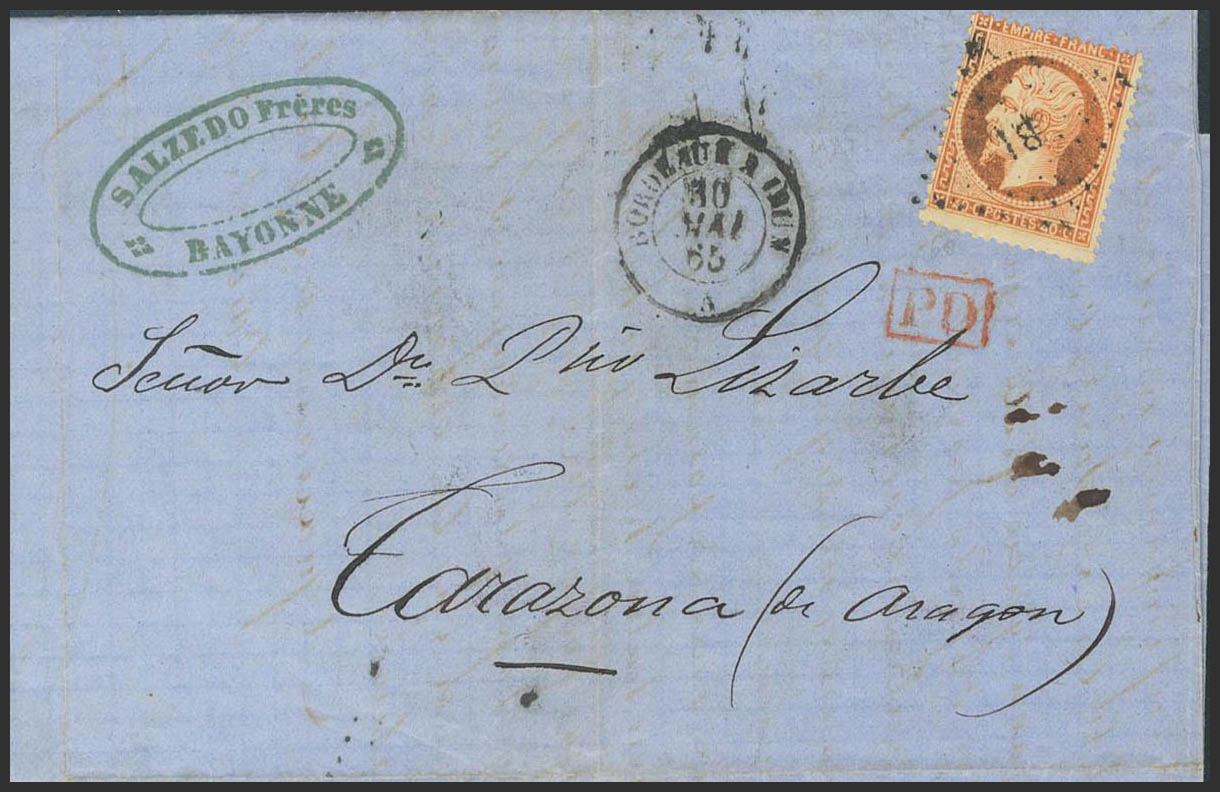 SALZEDO Frères
BAYONNE
BORDEAUX A IRUN
10
MAI
65
A
EMPIRE FRANC
40 C POSTES 40 C
PD
Señor Dn Pio Lizarbe
Tarazona (de Aragon)